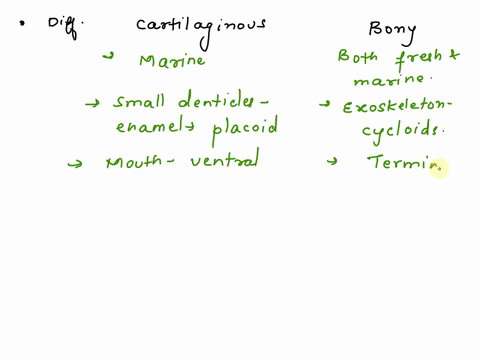 • Diff. Cartilaginous Bony
→ Marine Both fresh &
marine.
→ Small denticles - → Exoskeleton-
enamel → placoid cycloids.
→ Mouth - ventral → Termin